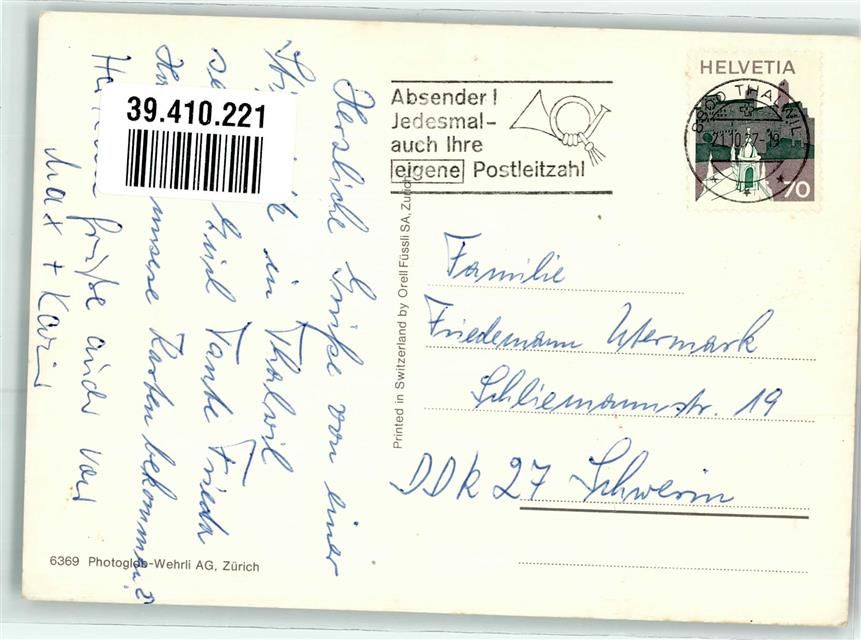 Herzliche Grüße von einer
in Thalwil
Tante Frieda
unsere Karten bekommen?
Grüße auch von
Max + Karin
39.410.221
Absender!
Jedesmal-
auch Ihre
eigene Postleitzahl
HELVETIA
8800 THALWIL
21.10.77-19
70
Familie
Friedemann Utermark
Schliemannstr. 19
DDR 27 Schwerin
Printed in Switzerland by Orell Füssli SA, Zürich
6369 Photoglob-Wehrli AG, Zürich